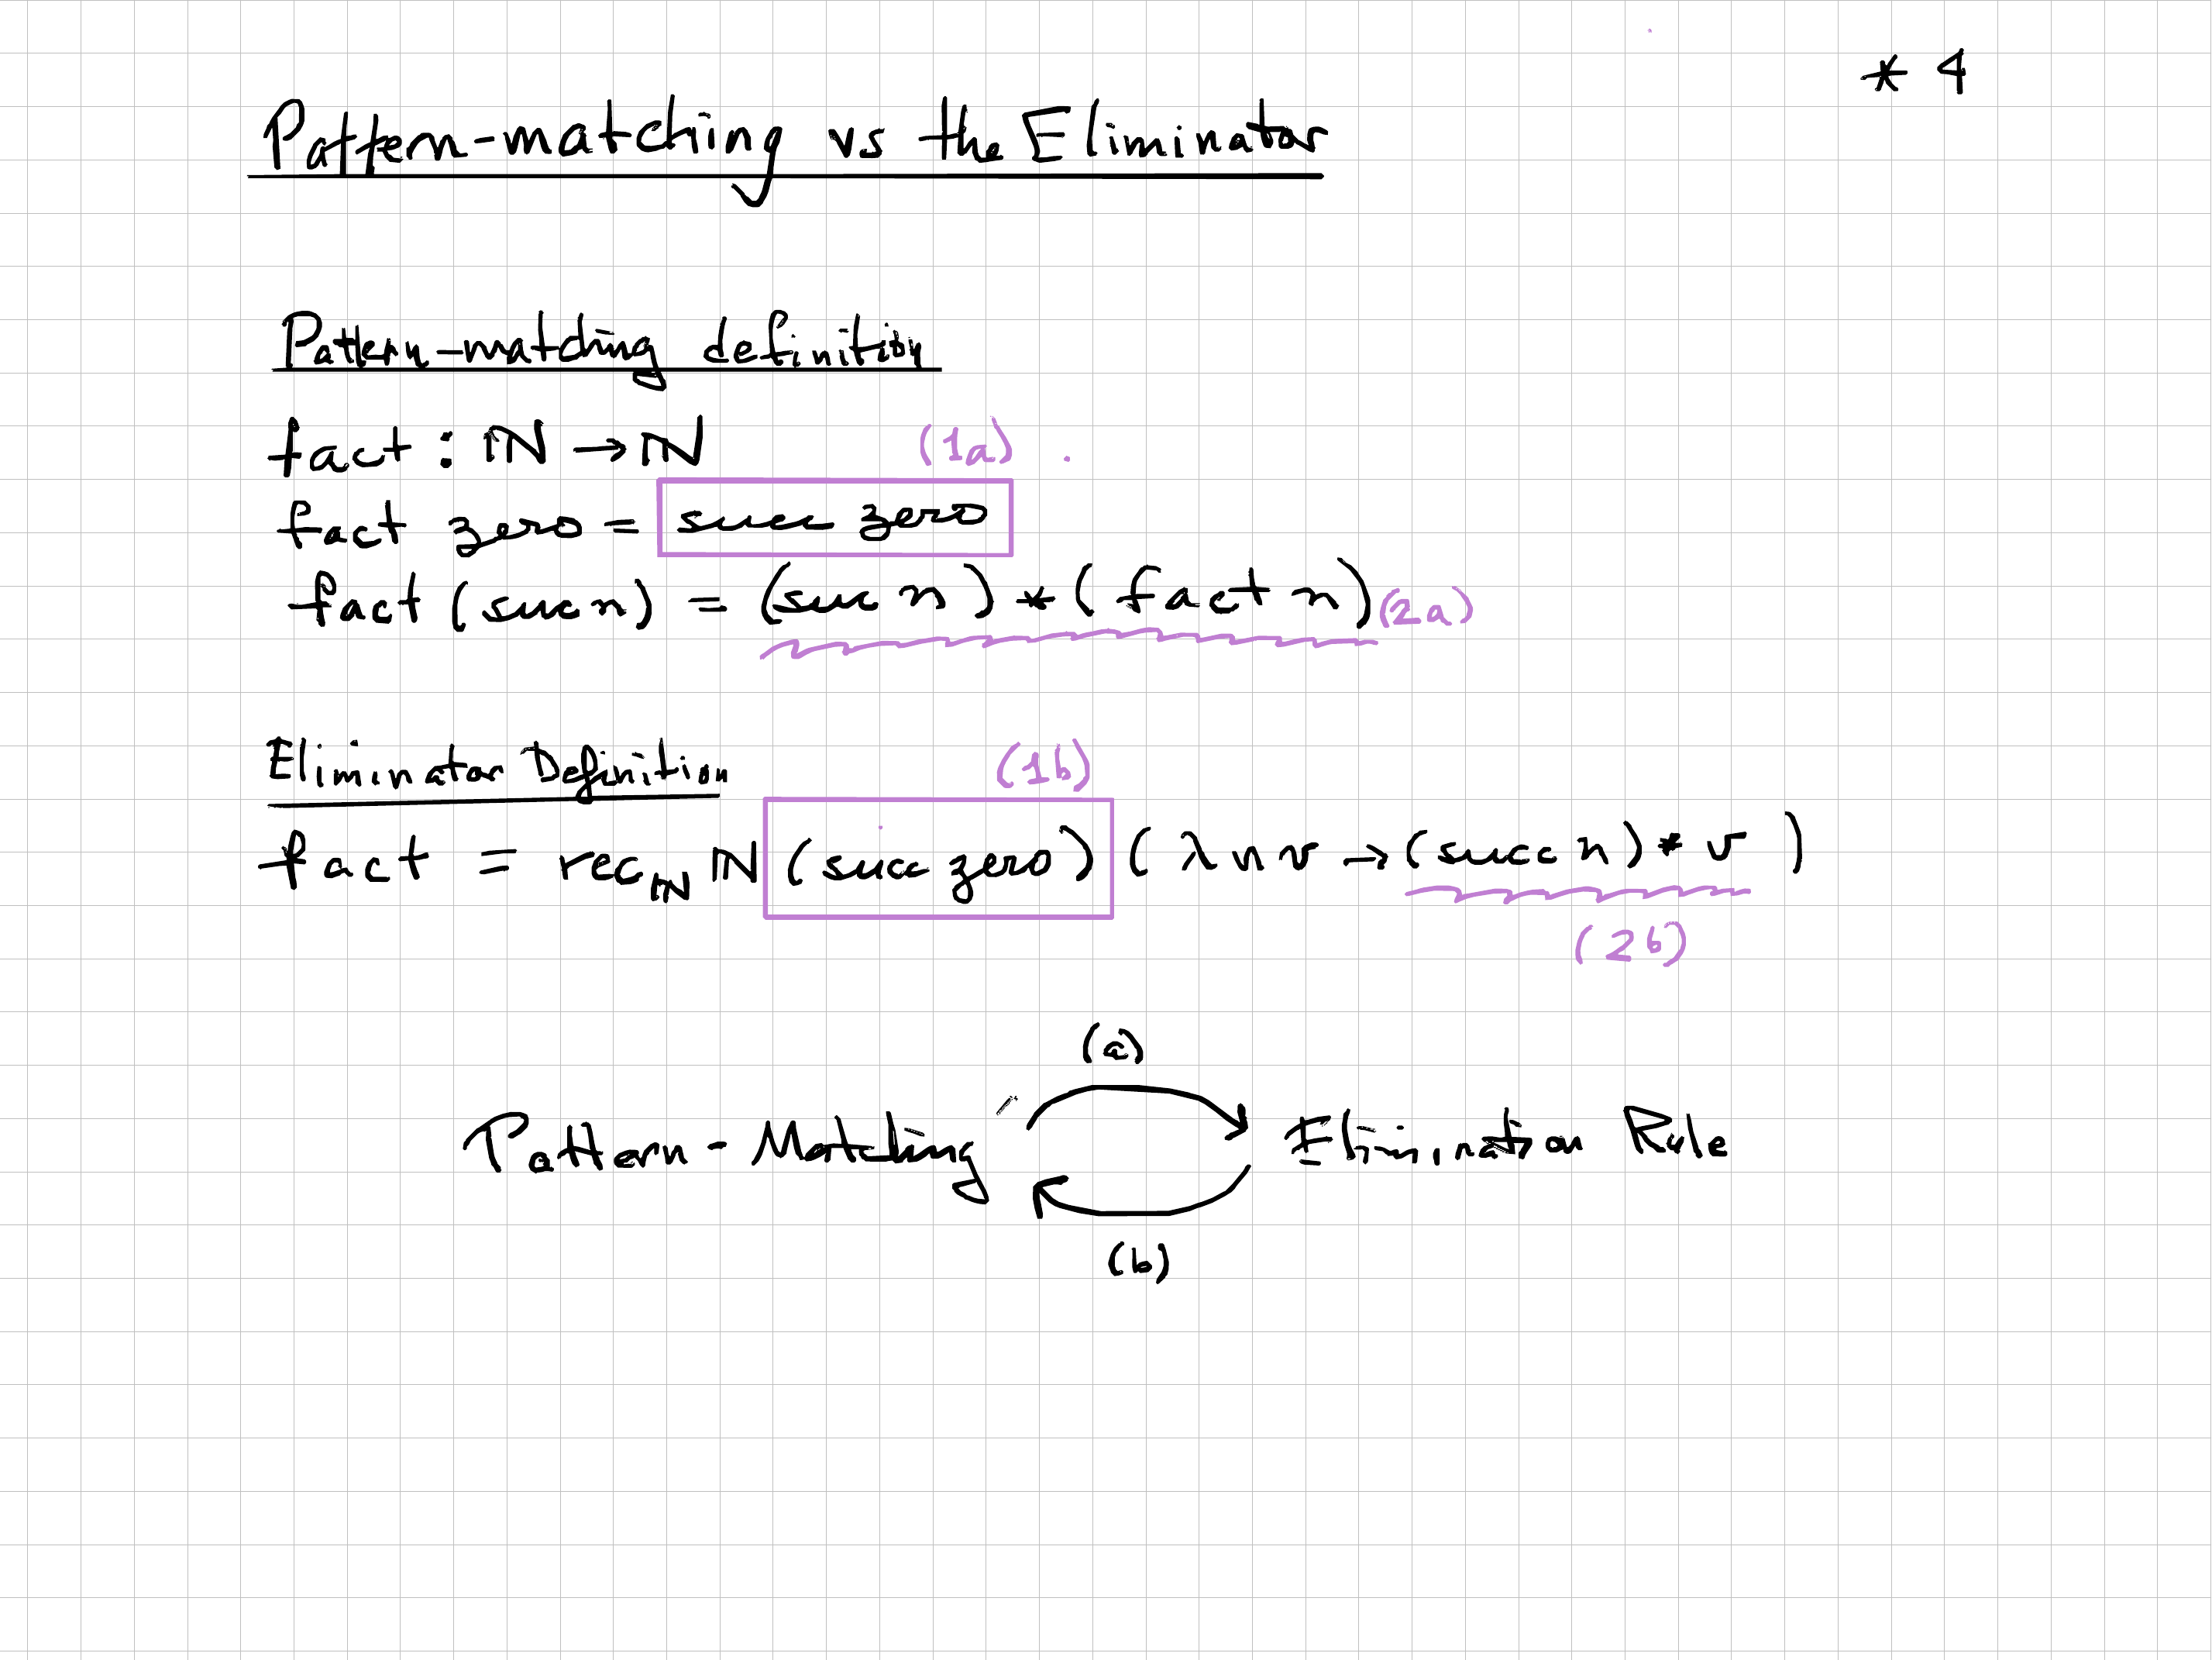 * 4
Pattern-matching vs the Eliminator
Pattern-matching definition
fact : ℕ → ℕ (1a)
fact zero = succ zero
fact (suc n) = (suc n) * (fact n) (2a)
Eliminator Definition (1b)
fact = rec_ℕ ℕ (succ zero) (λ n v → (succ n) * v )
(2b)
(a)
Pattern-Matching Elimination Rule
(b)